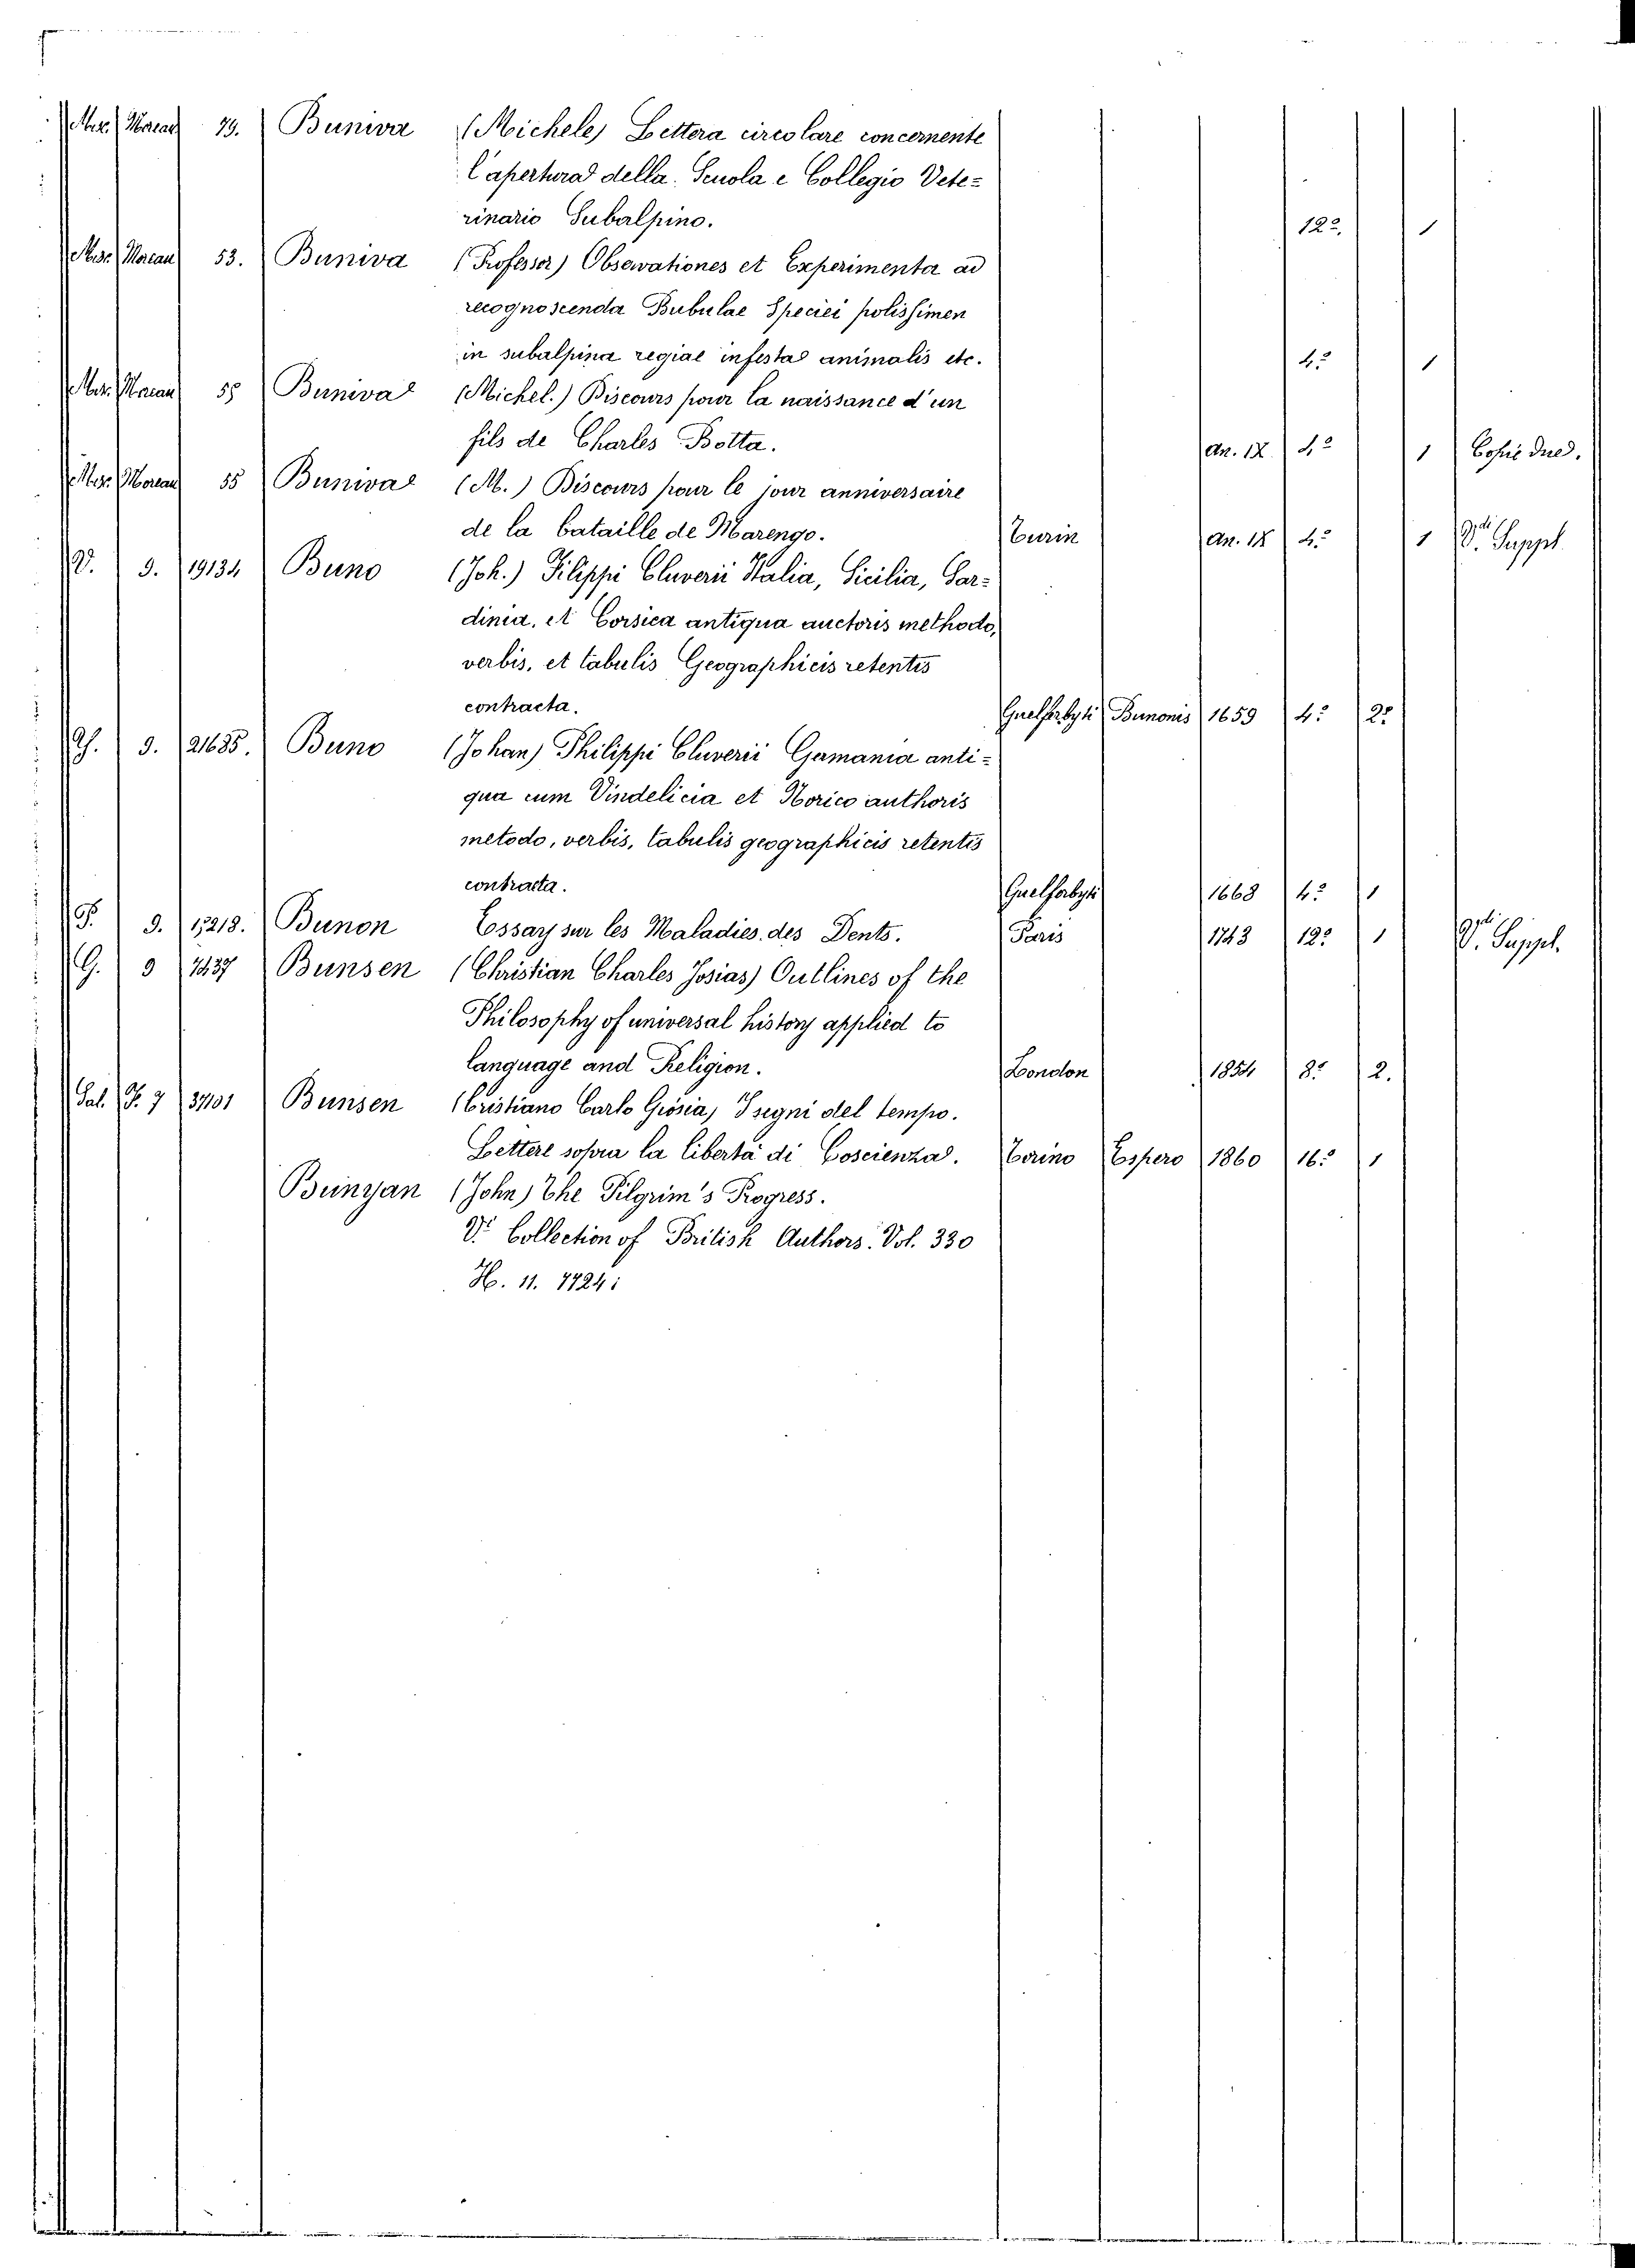 Misc. Moreau 79. Buniva (Michele) Lettera circolare concernente
l'apertura della Scuola e Collegio Vete=
rinario Subalpino. 12º. 1
Misc. Moreau 53. Buniva (Professor) Observationes et Experimenta ad
recognoscenda Bubulae Speciei potissimen
in subalpina regiae infestas animalis etc. 4º 1
Misc. Moreau 55 Buniva (Michel.) Discours pour la naissance d'un
fils de Charles Botta. An. IX 4º 1 Copie due.
Misc. Moreau 55 Buniva (M.) Discours pour le jour anniversaire
de la bataille de Marengo. Turin An. IX 4º 1 Vdi Suppl.
V. 9. 19134 Buno (Joh.) Filippi Cluverii Italia, Sicilia, Sar=
dinia, et Corsica antiqua auctoris methodo,
verbis, et tabulis Geographicis retentis
contracta. Guelferbyti Bunonis 1659 4º 2º
9. 21685. Buno (Johan) Philippi Cluverii Germania anti=
qua cum Vindelicia et Norico authoris
metodo, verbis, tabulis geographicis retentis
contracta. Guelferbyti 1663 4º 1
F. 9. 15218. Bunon Essay sur les Maladies des Dents. Paris 1743 12º 1 Vdi Suppl.
G. 9 7437 Bunsen (Christian Charles Josias) Outlines of the
Philosophy of universal history applied to
language and Religion. London 1854 8º 2.
Sal. F. 7 37101 Bunsen (Cristiano Carlo Giosia) I segni del tempo.
Lettere sopra la libertà di Coscienza. Torino Espero 1860 16º 1
Bunyan (John) The Pilgrim's Progress.
Vi Collection of British Authors. Vol. 330
H. 11. 7724: